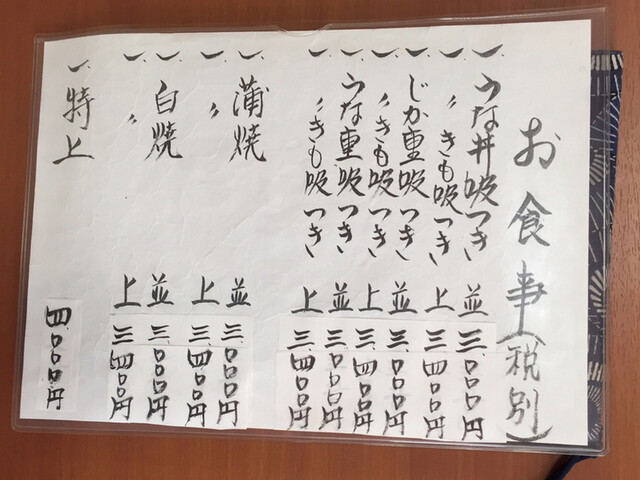 お食事(税別)
一、うな丼吸つき 並 三、〇〇〇円
一、〃きも吸つき 上 三、四〇〇円
一、じか重吸つき 並 三、〇〇〇円
一、〃きも吸つき 上 三、四〇〇円
一、うな重吸つき 並 三、〇〇〇円
一、〃きも吸つき 上 三、四〇〇円
一、蒲焼 並 三、〇〇〇円
一、〃 上 三、四〇〇円
一、白焼 並 三、〇〇〇円
一、〃 上 三、四〇〇円
一、特上 四、〇〇〇円